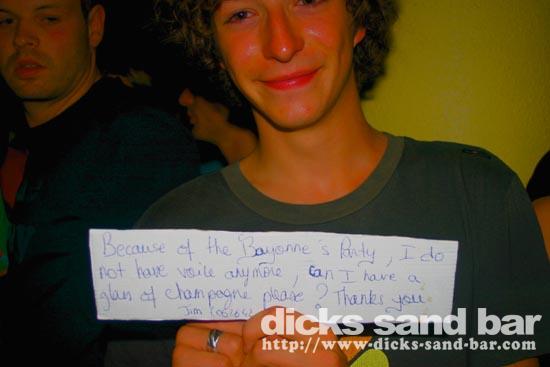 Because of the Bayonne's Party, I do
not have voice anymore, can I have a
glass of champagne please? Thanks you.
Jim
dicks sand bar
http://www.dicks-sand-bar.com/